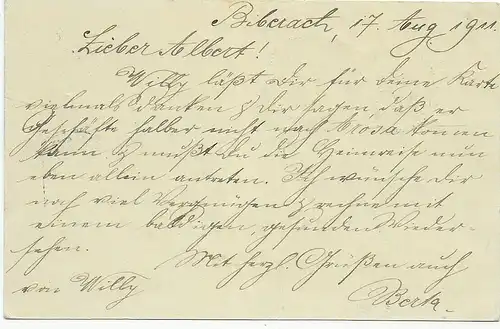 Biberach, 17. Aug 1911.
Lieber Albert!
Willy läßt Dir für deine Karte
vielmals danken & Dir sagen, daß er
Geschäfte halber nicht nach Arosa kommen
kann. & mußt Du die Heimreise nun
eben allein antreten. Ich wünsche Dir
noch viel Vergnügen & rechne mit
einem baldigen gesunden Wieder-
sehen.
Mit herzl. Grüßen auch
von Willy
Berta.